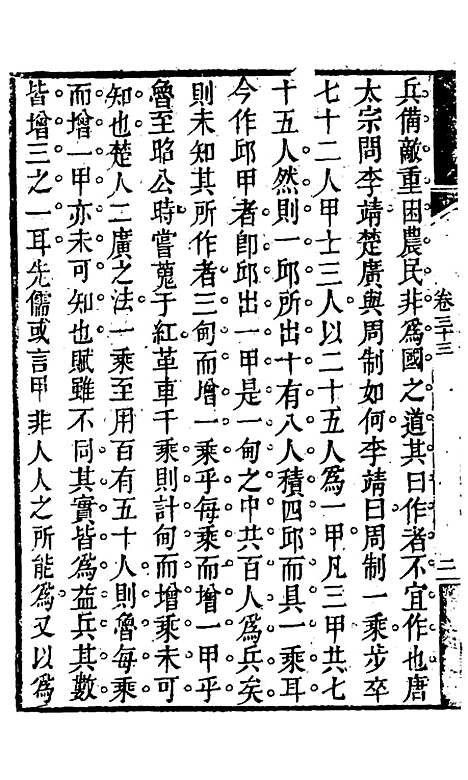 卷三十三
二
兵備敵重困農民非爲國之道其曰作者不宜作也唐
太宗問李靖楚廣與周制如何李靖曰周制一乘步卒
七十二人甲士三人以二十五人爲一甲凡三甲共七
十五人然則一邱所出十有八人積四邱而具一乘耳
今作邱甲者卽邱出一甲是一甸之中共百人爲兵矣
則未知其所作者三甸而增一乘乎每乘而增一甲乎
魯至昭公時嘗蒐于紅革車千乘則計甸而增乘未可
知也楚人二廣之法一乘至用百有五十人則魯每乘
而增一甲亦未可知也賦雖不同其實皆爲益兵其數
皆增三之一耳先儒或言甲非人人之所能爲又以爲